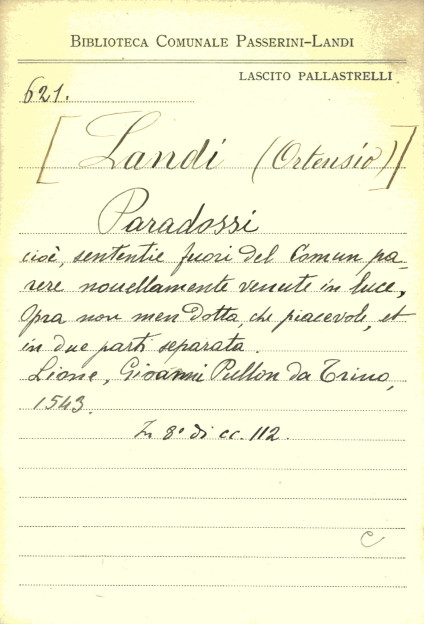 BIBLIOTECA COMUNALE PASSERINI-LANDI
LASCITO PALLASTRELLI
621.
[Landi (Ortensio)]
Paradossi
cioè, sententie fuori del Comun pa-
rere novellamente venute in luce,
Opra non men dotta, che piacevole, et
in due parti separata.
Lione, Gioanni Pullon da Trino,
1543.
In 8° di cc. 112.
c